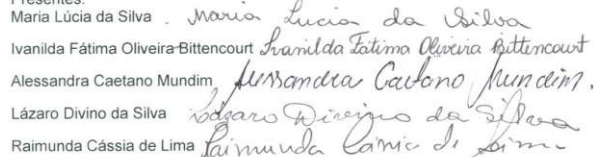 Presentes:
Maria Lúcia da Silva Maria Lucia da Silva
Ivanilda Fátima Oliveira Bittencourt Ivanilda Fátima Oliveira Bittencourt
Alessandra Caetano Mundim Alessandra Caetano Mundim.
Lázaro Divino da Silva Lázaro Divino da Silva
Raimunda Cássia de Lima Raimunda Cássia de Lima